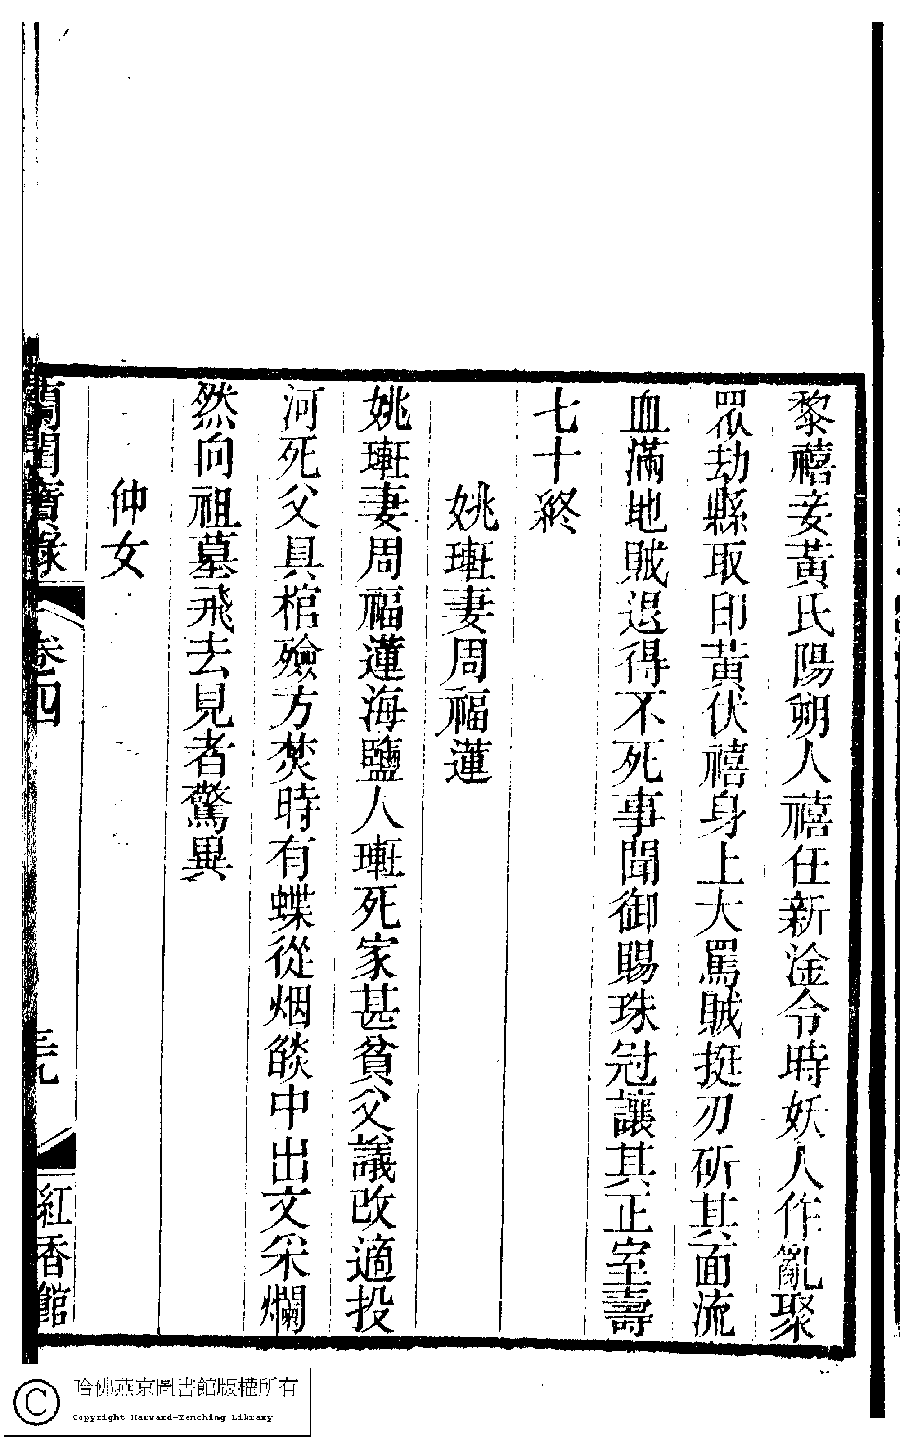 黎禧妾黃氏陽朔人禧任新淦令時妖人作亂聚
眾劫縣取印黃伏禧身上大罵賊挺刃斫其面流
血滿地賊退得不死事聞御賜珠冠讓其正室壽
七十終
姚㻍妻周福蓮
姚㻍妻周福蓮海鹽人㻍死家甚貧父議改適投
河死父具棺殮方焚時有蝶從烟燄中出文采爛
然向祖墓飛去見者驚異
仲女
蘭閨寶錄
卷四
三九
紅香館
哈佛燕京圖書館版權所有
Copyright Harvard-Yenching Library